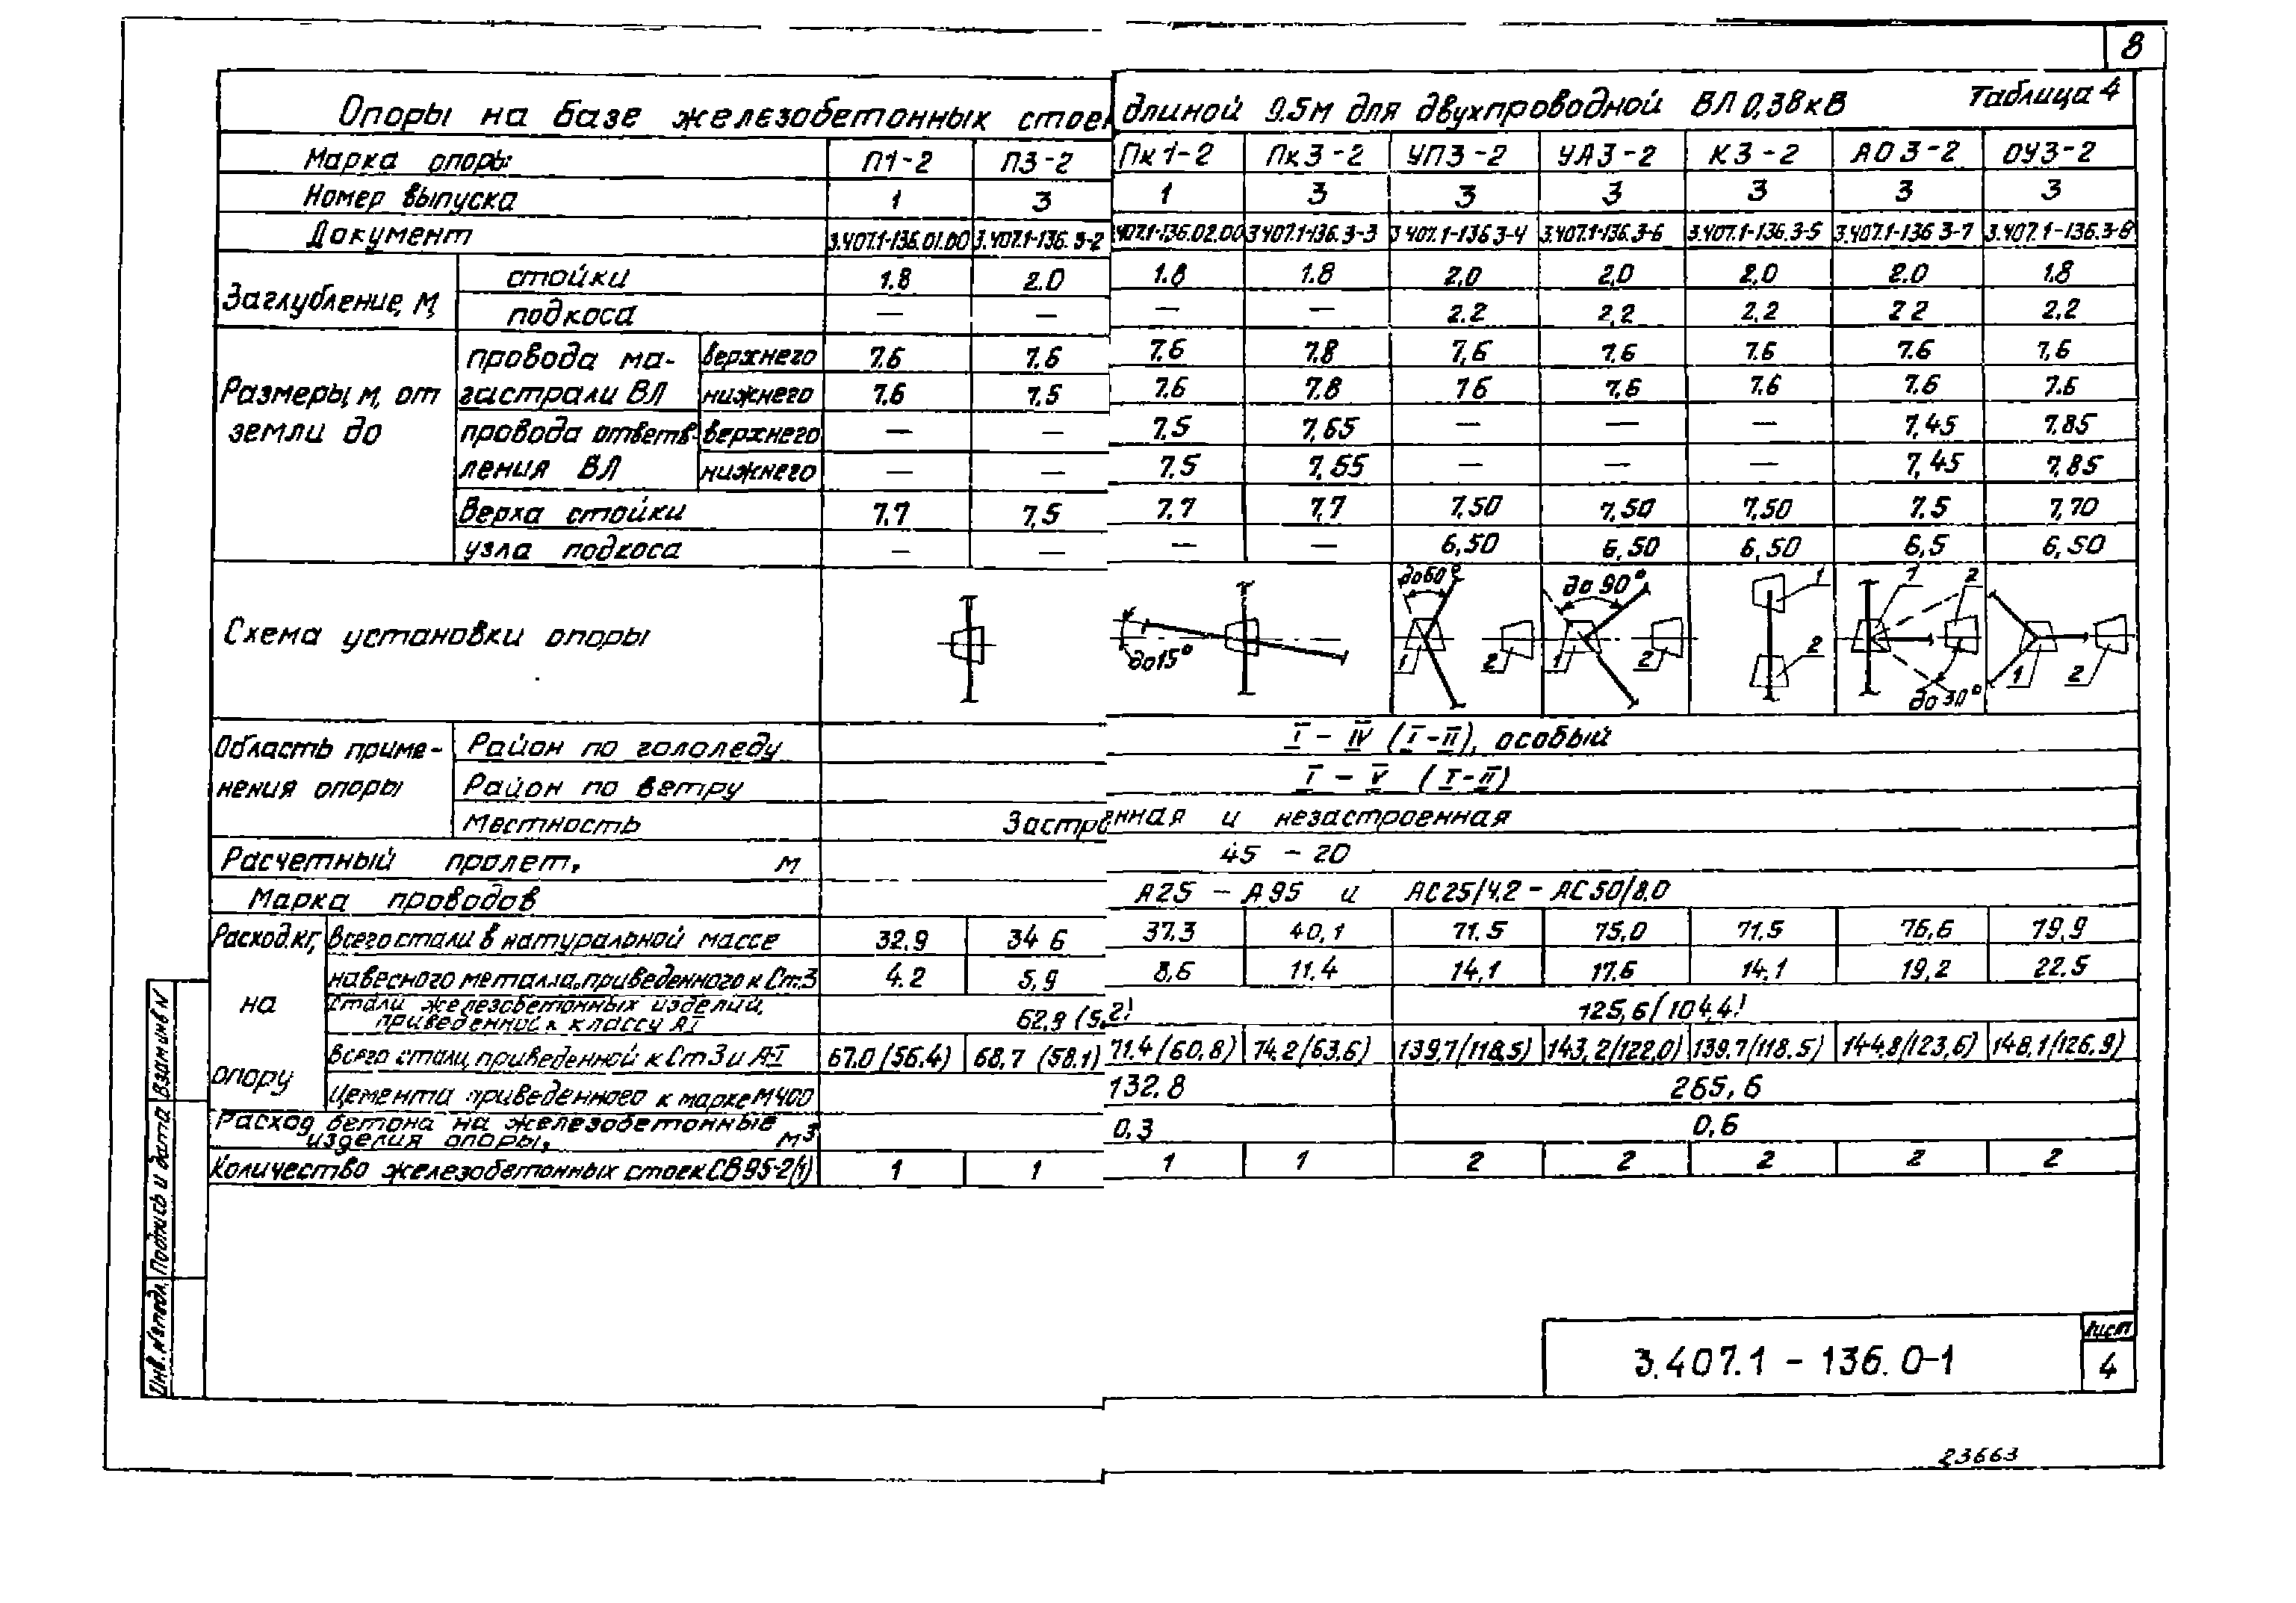 8
Таблица 4
Опоры на базе железобетонных стоек длиной 9.5м для двухпроводной ВЛ 0,38кВ
Марка опоры П1-2 П3-2 Пк1-2 Пк3-2 УП3-2 УА3-2 К3-2 АО3-2 ОУ3-2
Номер выпуска 1 3 1 3 3 3 3 3 3
Документ 3.407.1-136.01.00 3.407.1-136.3-2 407.1-136.02.00 3.407.1-136.3-3 3.407.1-136 3-4 3.407.1-136.3-6 3.407.1-136.3-5 3.407.1-136 3-7 3.407.1-136.3-8
Заглубление, м,
стойки 1.8 2.0 1.8 1.8 2,0 2,0 2,0 2.0 1.8
подкоса — — — — 2.2 2,2 2,2 2 2 2,2
Размеры, м, от земли до
провода магастрали ВЛ
верхнего 7.6 7.6 7.6 7.8 7,6 7.6 7.6 7.6 7,6
нижнего 7.6 7.5 7.6 7.8 7 6 7,6 7.6 7.6 7.6
провода ответвления ВЛ
верхнего — — 7.5 7,65 — — — 7,45 7.85
нижнего — — 7.5 7,65 — — — 7,45 7,85
Верха стойки 7.7 7,5 7.7 7,7 7,50 7,50 7,50 7.5 7,70
узла подкоса — — — — 6,50 6,50 6,50 6,5 6,50
Схема установки опоры
до15°
до60° 1 2
до 90° 1 2
1 2
1 2 до 30°
1 2
Область применения опоры
Район по гололеду I - IV (I-II), особый
Район по ветру I - V (I-II)
Местность Застроенная и незастроенная
Расчетный пролет, м 45 - 20
Марка проводов А25 - А95 и АС25/4.2 - АС50/8.0
Расход, кг, на опору
всего стали в натуральной массе 32,9 34 6 37.3 40,1 71.5 75,0 71,5 76,6 79,9
навесного металла, приведенного к Ст.3 4.2 5,9 8,6 11.4 14,1 17.6 14,1 19,2 22.5
Стали железобетонных изделий, приведенной к классу АI 62,9 (5.2) 125,6/104,4)
всего стали, приведенной к Ст 3 и А-I 67.0 (56.4) 68,7 (58.1) 71.4 (60,8) 74.2/63,6) 139,7/118,5) 143,2/122,0) 139,7/118.5) 144,8/123,6) 148,1/126.9)
Цемента приведенного к марке М400 132.8 265,6
Расход бетона на железобетонные изделия опоры, м³ 0,3 0,6
Количество железобетонных стоек СВ95-2(1) 1 1 1 1 2 2 2 2 2
Взам инв N
Подпись и дата
Инв. №подл.
3.407.1 - 136. 0-1
лист
4
23663